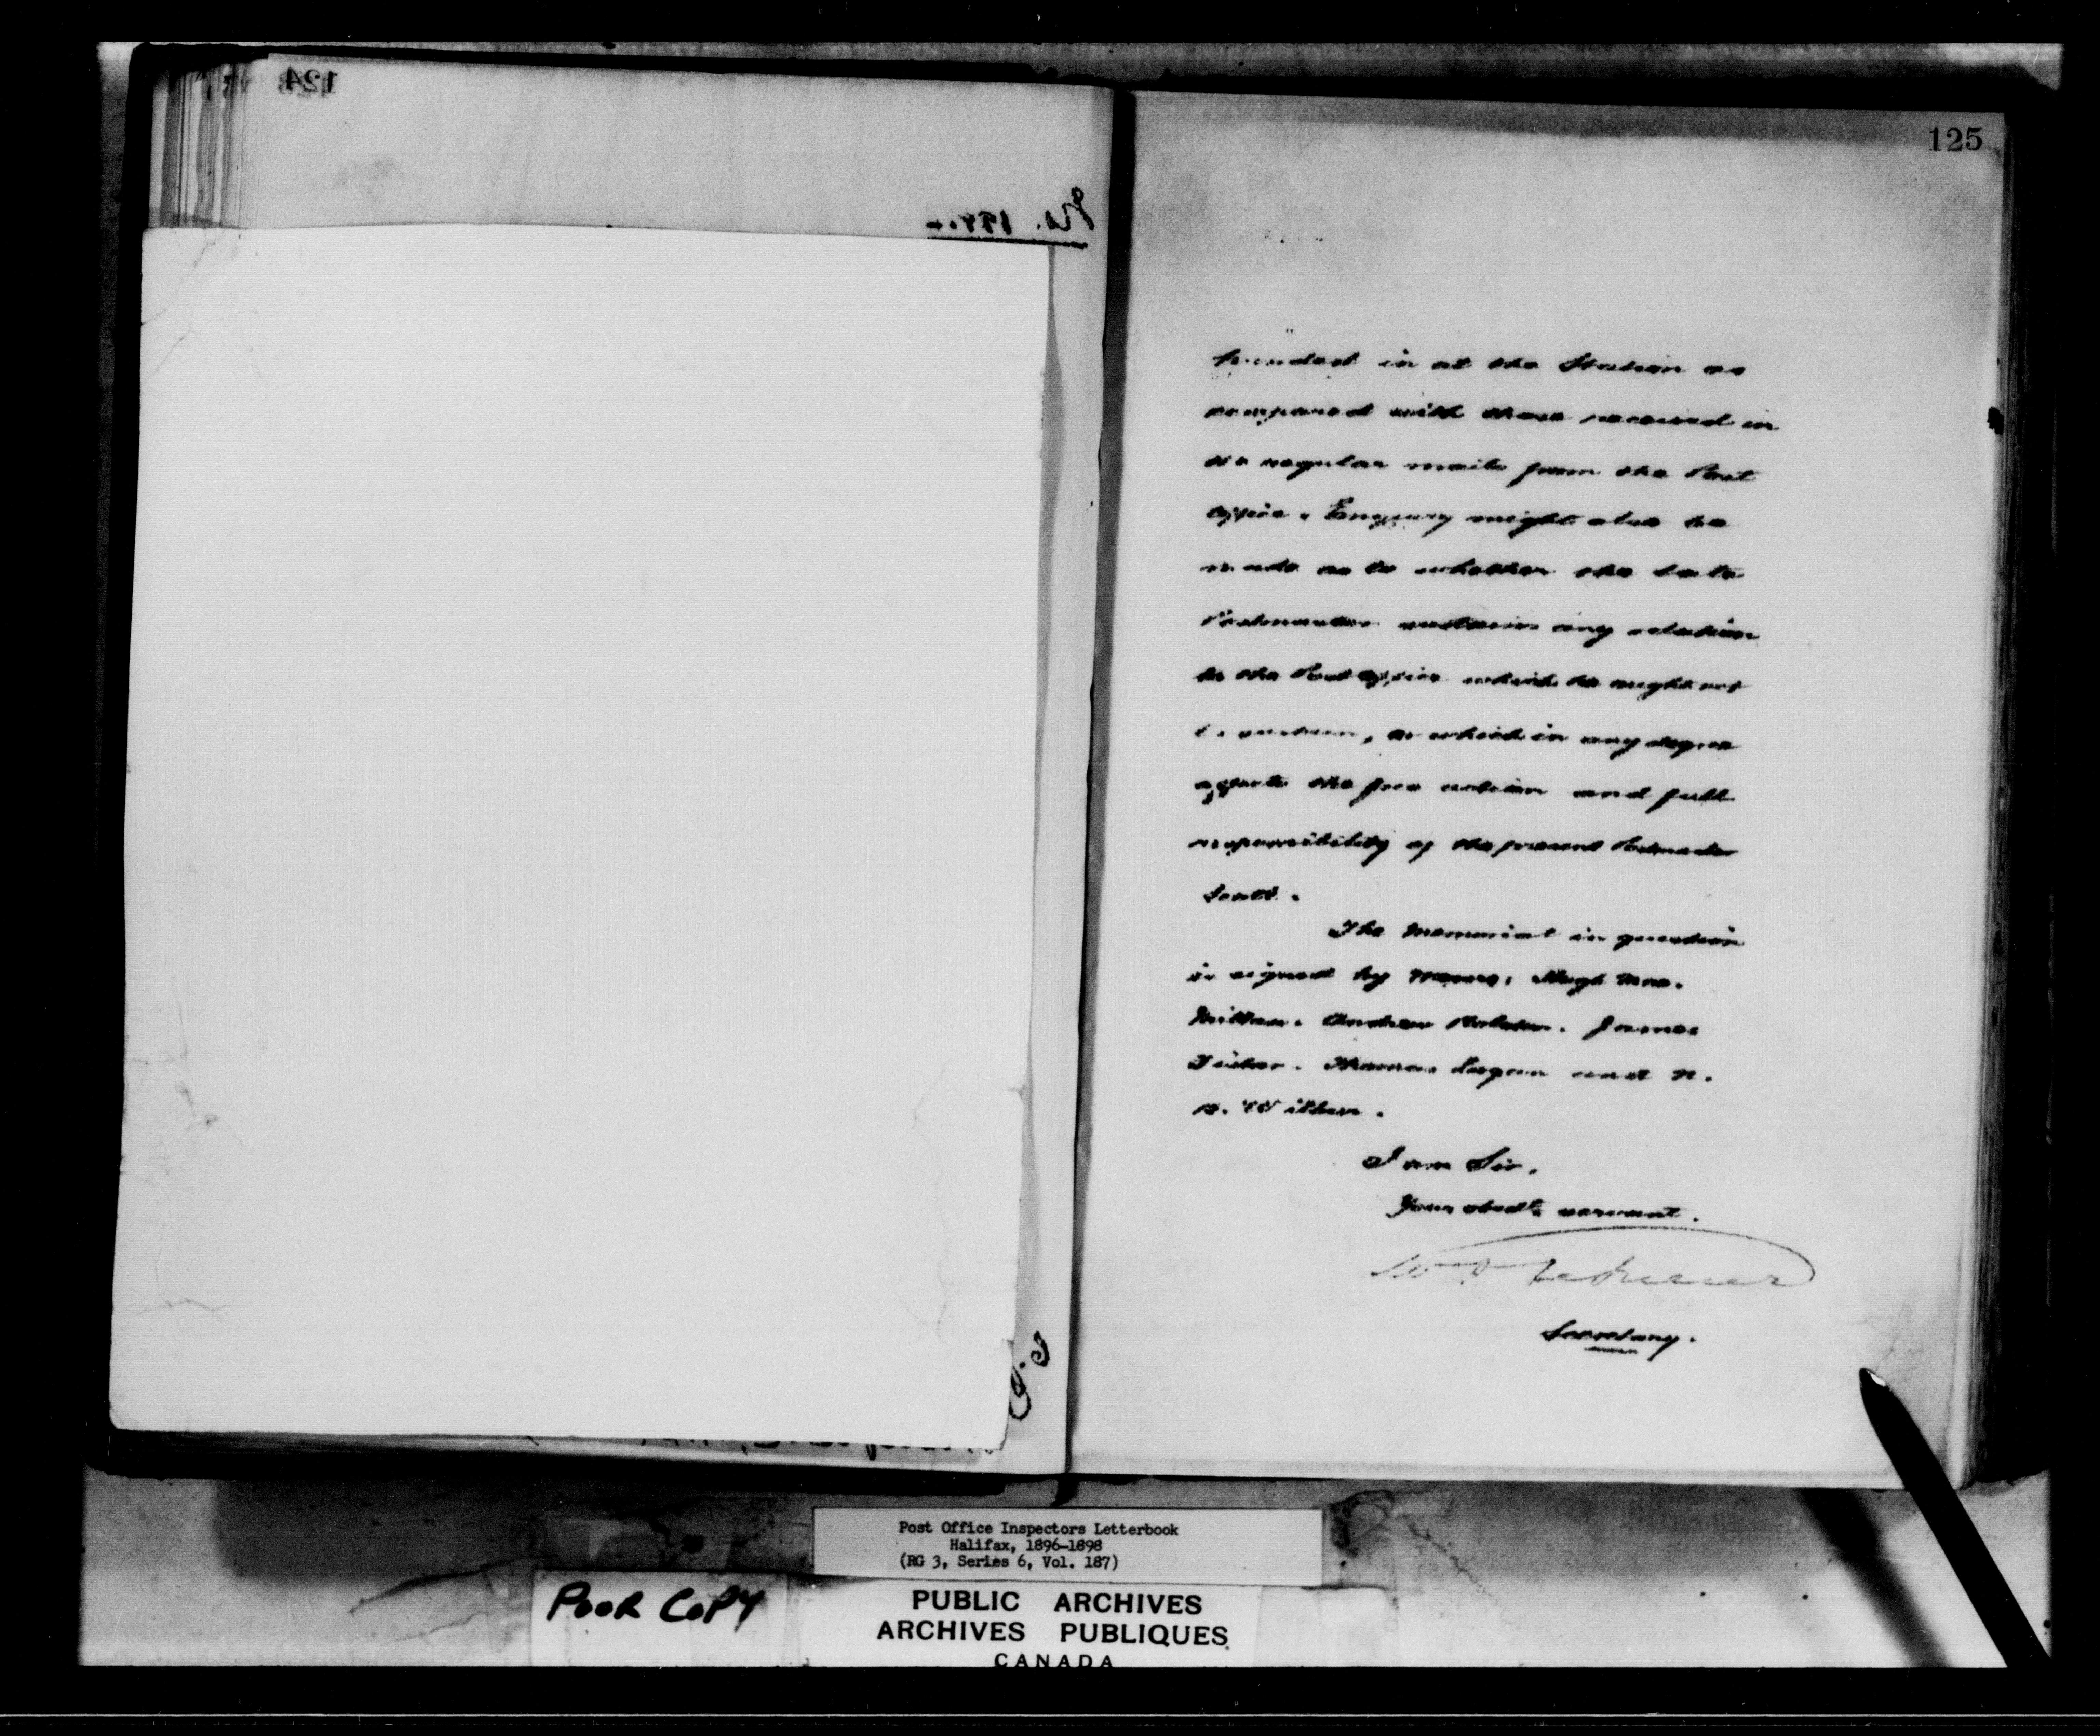 124
125
handed in at the Station as
compared with those received in
the regular mails from the Post
Office. Enquiry might also be
made as to whether the late
Postmaster sustains any relation
to the Post Office which he ought not
to sustain, or which in any degree
affects the free action and full
responsibility of the present Postmaster
The Memorial in question
is signed by Messrs. Hugh Mac.
Millan. Andrew James
Fisher. Thomas and
I am Sir,
Your obedt. servant.
Secretary.
Post Office Inspectors Letterbook
Halifax, 1896-1898
(RG 3, Series 6, Vol. 187)
POOR COPY
PUBLIC ARCHIVES
ARCHIVES PUBLIQUES
CANADA